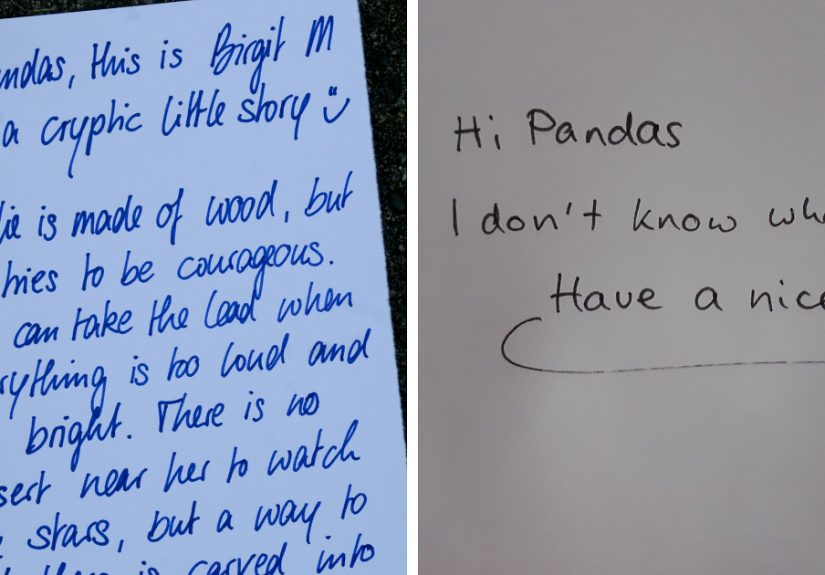 ndas, this is Birgit M
a cryptic little story
ie is made of wood, but
tries to be courageous.
can take the lead when
rything is too loud and
bright. There is no
sert near her to watch
stars, but a way to
is carved into
Hi Pandas
I don't know wh
Have a nice